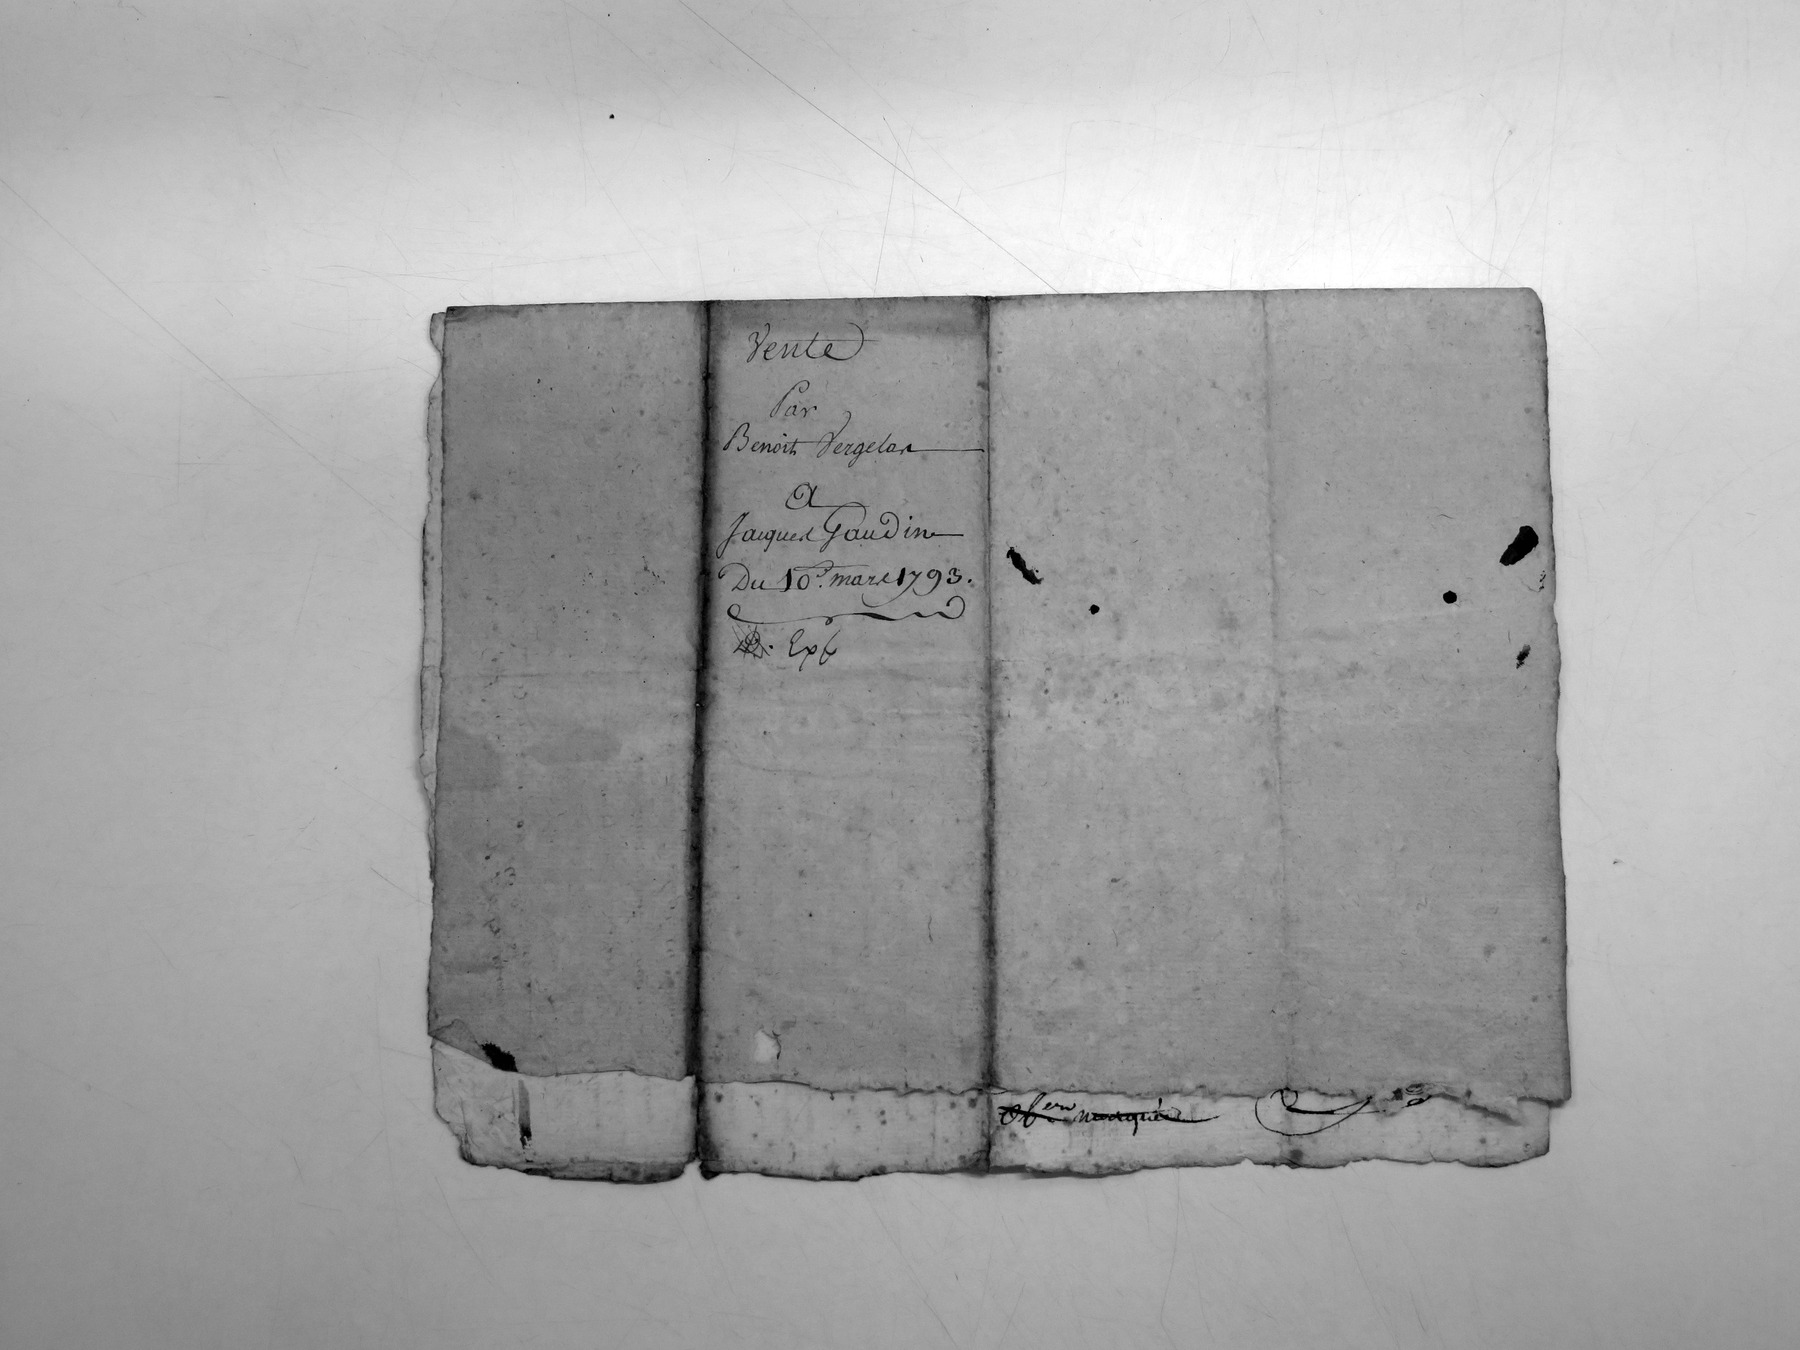 Vente
Par
Benoit Vergelas
A
Jacques Gaudin
Du 10e. mars 1793.
Exp